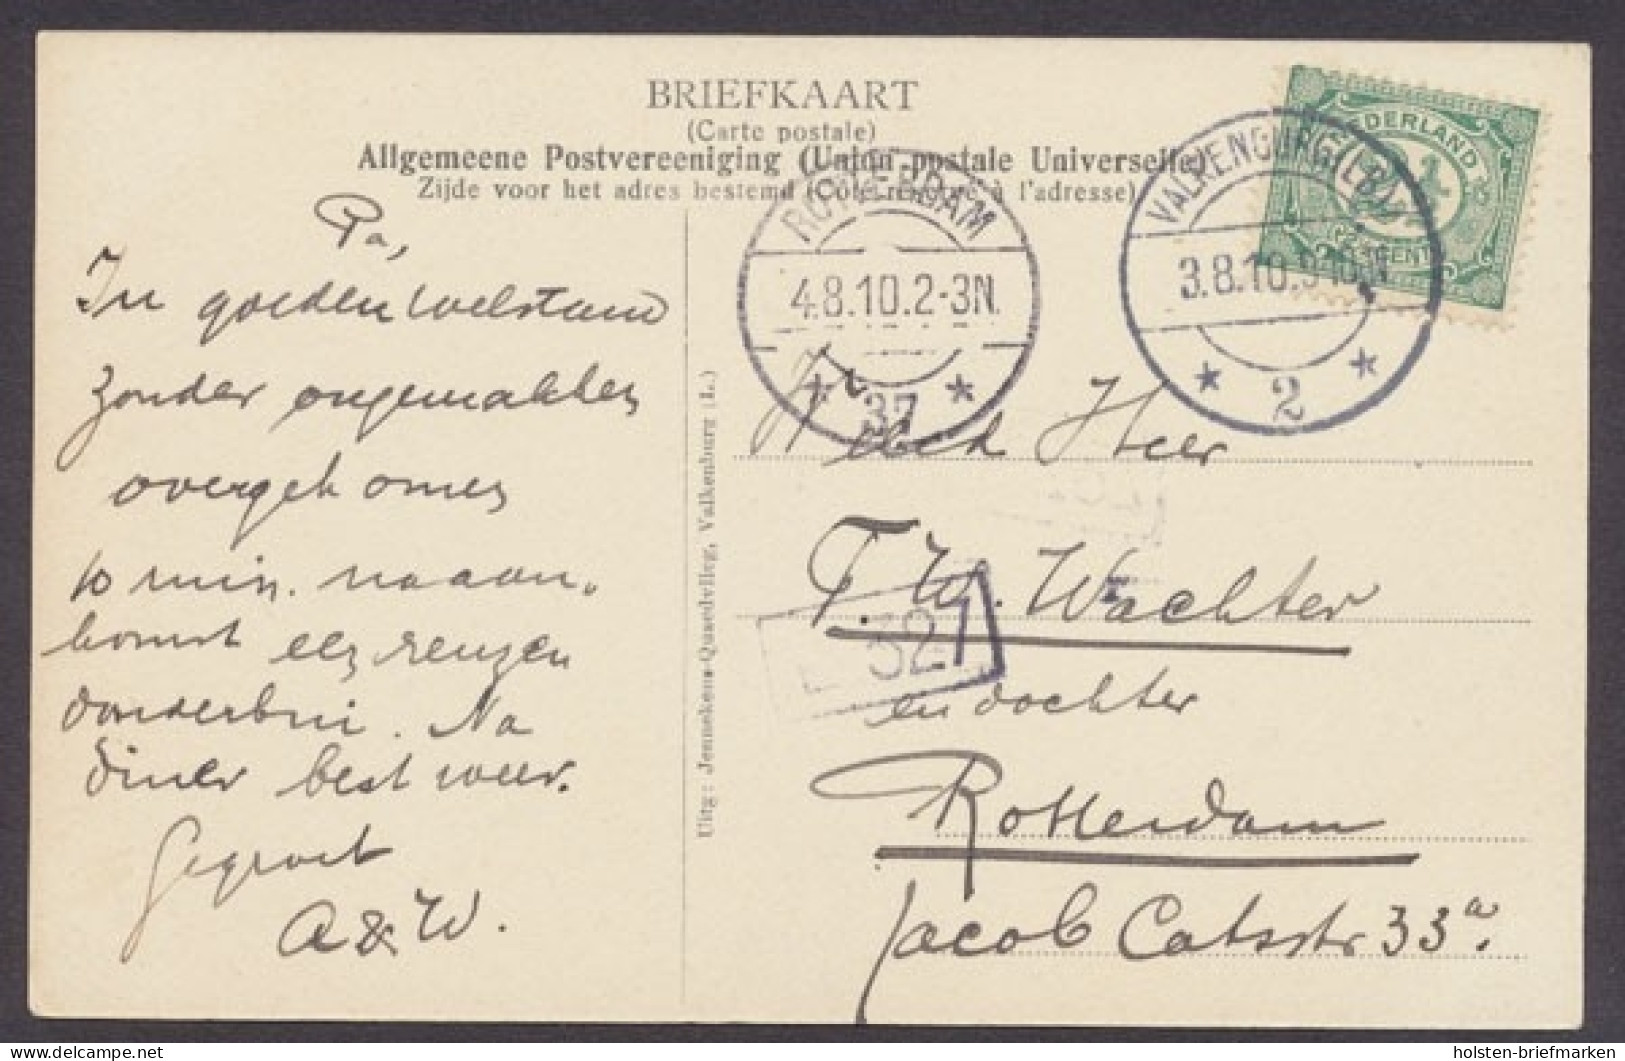 BRIEFKAART
(Carte postale)
Allgemeene Postvereeniging (Union postale Universelle)
Zijde voor het adres bestemd (Côté réservé à l'adresse)
NEDERLAND
CENT
VALKENBURG (LB)
3.8.10.9-10.N
2
ROTTERDAM
4.8.10.2-3N.
37
Pa,
In goeden welstand
zonder ongemakken
overgekomen
10 min. na aan.
komst een reuzen
donderbui. Na
diner best weer.
Gegroet
A & W.
Uitg: Jennekens-Quaedvlieg, Valkenburg (L.)
Heer
T. W. Wachter
en dochter
Rotterdam
Jacob Catsstr 33a.
321
delcampe.net
holsten-briefmarken